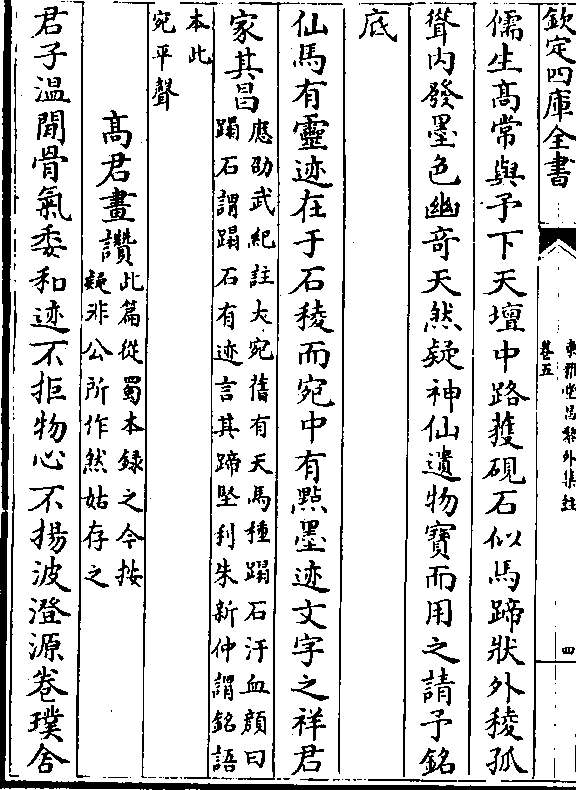 欽定四庫全書
東雅堂昌黎外集註
卷五
四
儒生髙常與予下天壇中路獲硯石似馬蹄狀外稜孤
聳内發墨色幽奇天然疑神仙遺物寳而用之請予銘
底
仙馬有靈迹在于石稜而宛中有㸃墨迹文字之祥君
家其昌
應劭武紀註大宛舊有天馬種蹋石汗血顔曰
蹋石謂蹋石有迹言其蹄堅利朱新仲謂銘語
本此
宛平聲
髙君畫讚
此篇從蜀本録之今按
疑非公所作然姑存之
君子温閒骨氣委和迹不拒物心不揚波澄源卷璞含